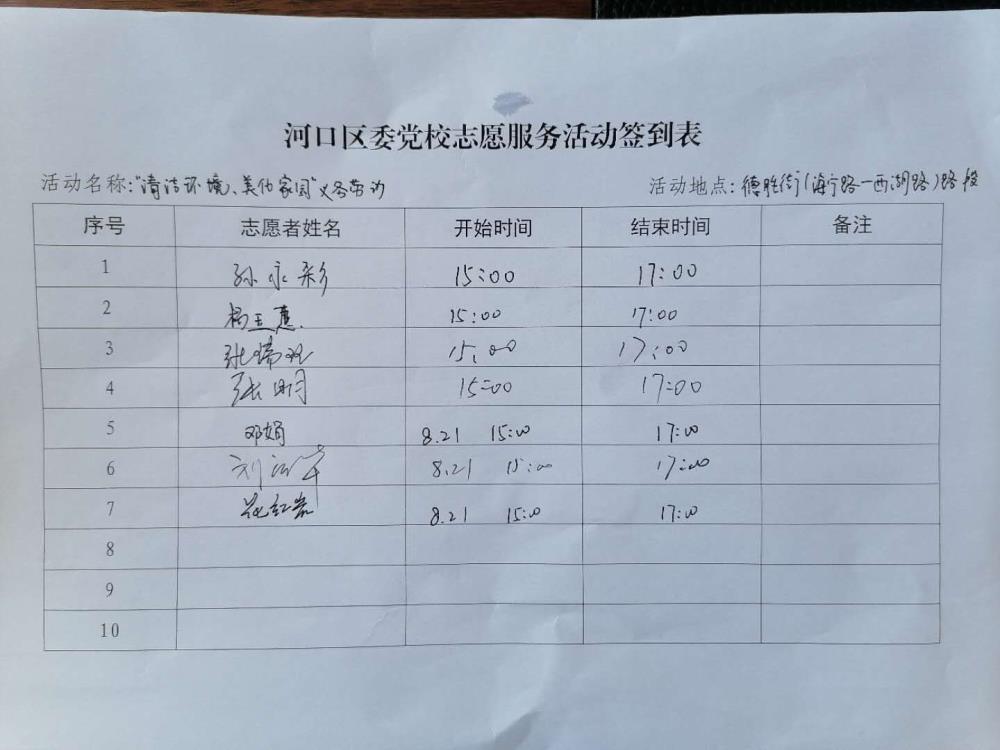 河口区委党校志愿服务活动签到表
活动名称:"清洁环境、美化家园"义务劳动 活动地点:德胜街(海宁路一西湖路)路段
序号 志愿者姓名 开始时间 结束时间 备注
1 孙永彩 15:00 17:00
2 杨玉蕙 15:00 17:00
3 张瑞 15:00 17:00
4 张明 15:00 17:00
5 邓娟 8.21 15:00 17:00
6 刘 8.21 15:00 17:00
7 红岩 8.21 15:00 17:00
8
9
10